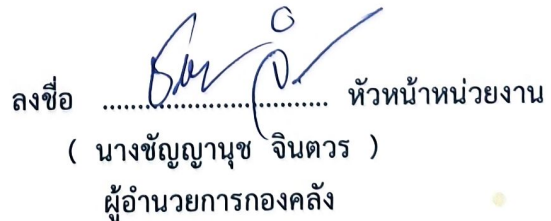 ลงชื่อ .................................... หัวหน้าหน่วยงาน
( นางชัญญานุช จินตวร )
ผู้อำนวยการกองคลัง